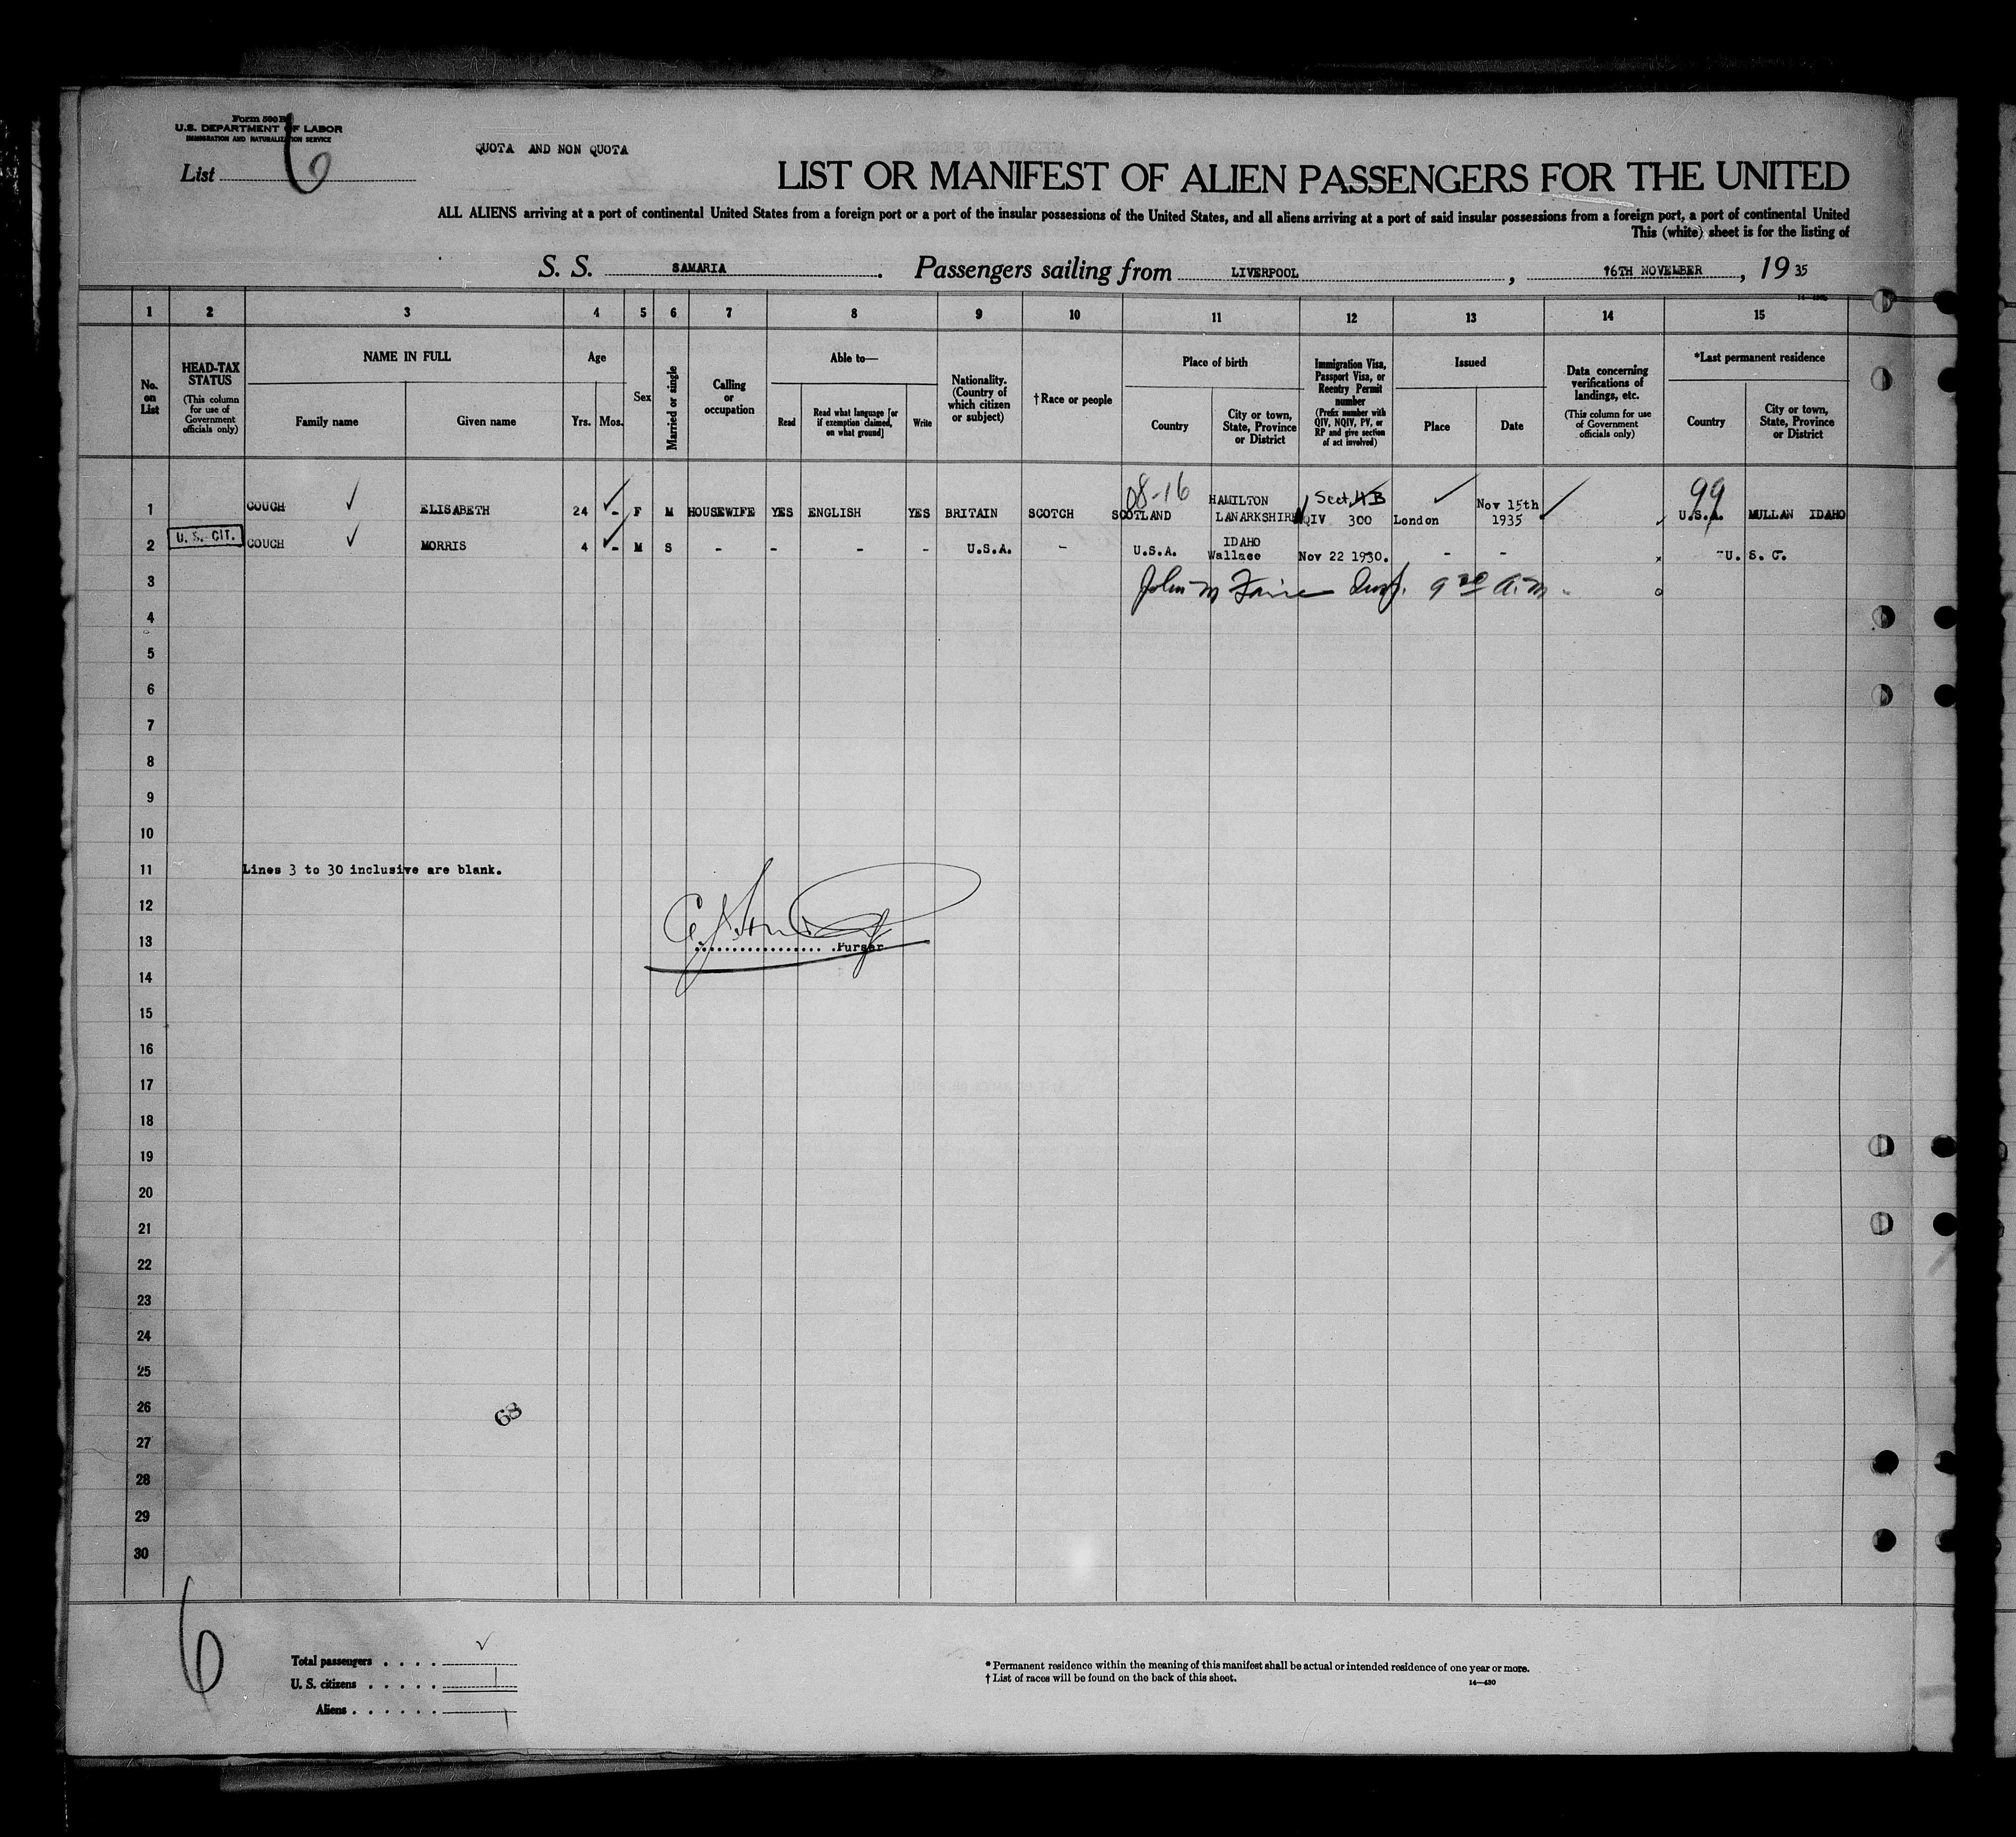 Form 500 B
U.S. DEPARTMENT OF LABOR
IMMIGRATION AND NATURALIZATION SERVICE
List 6
QUOTA AND NON QUOTA
LIST OR MANIFEST OF ALIEN PASSENGERS FOR THE UNITED
ALL ALIENS arriving at a port of continental United States from a foreign port or a port of the insular possessions of the United States, and all aliens arriving at a port of said insular possessions from a foreign port, a port of continental United
This (white) sheet is for the listing of
S. S. SAMARIA. Passengers sailing from LIVERPOOL, 16TH NOVEMBER, 19 35
1 2 3 4 5 6 7 8 9 10 11 12 13 14 15
No. on List
HEAD-TAX STATUS (This column for use of Government officials only)
NAME IN FULL
Family name
Given name
Age
Yrs.
Mos.
Sex
Married or single
Calling or occupation
Able to—
Read
Read what language [or if exemption claimed, on what ground]
Write
Nationality. (Country of which citizen or subject)
†Race or people
Place of birth
Country
City or town, State, Province or District
Immigration Visa, Passport Visa, or Reentry Permit number (Prefix number with QIV, NQIV, PV, or RP and give section of act involved)
Issued
Place
Date
Data concerning verifications of landings, etc. (This column for use of Government officials only)
*Last permanent residence
Country
City or town, State, Province or District
08-16 99
HAMILTON Sect.4B Nov 15th
1 COUCH ELISABETH 24 - F M HOUSEWIFE YES ENGLISH YES BRITAIN SCOTCH SCOTLAND LANARKSHIRE NQIV 300 London 1935 U.S.A. MULLAN IDAHO
IDAHO
2 U. S. CIT. COUCH MORRIS 4 - M S - - - - U.S.A. - U.S.A. Wallace Nov 22 1930. - - U. S. C.
3 John M 9 30 a.m.
4
5
6
7
8
9
10
11 Lines 3 to 30 inclusive are blank.
12
13 Purser
14
15
16
17
18
19
20
21
22
23
24
25
26
68
27
28
29
30
6
Total passengers . . . .
U. S. citizens . . . . . 1
Aliens . . . . . . 1
* Permanent residence within the meaning of this manifest shall be actual or intended residence of one year or more.
† List of races will be found on the back of this sheet.
14—430